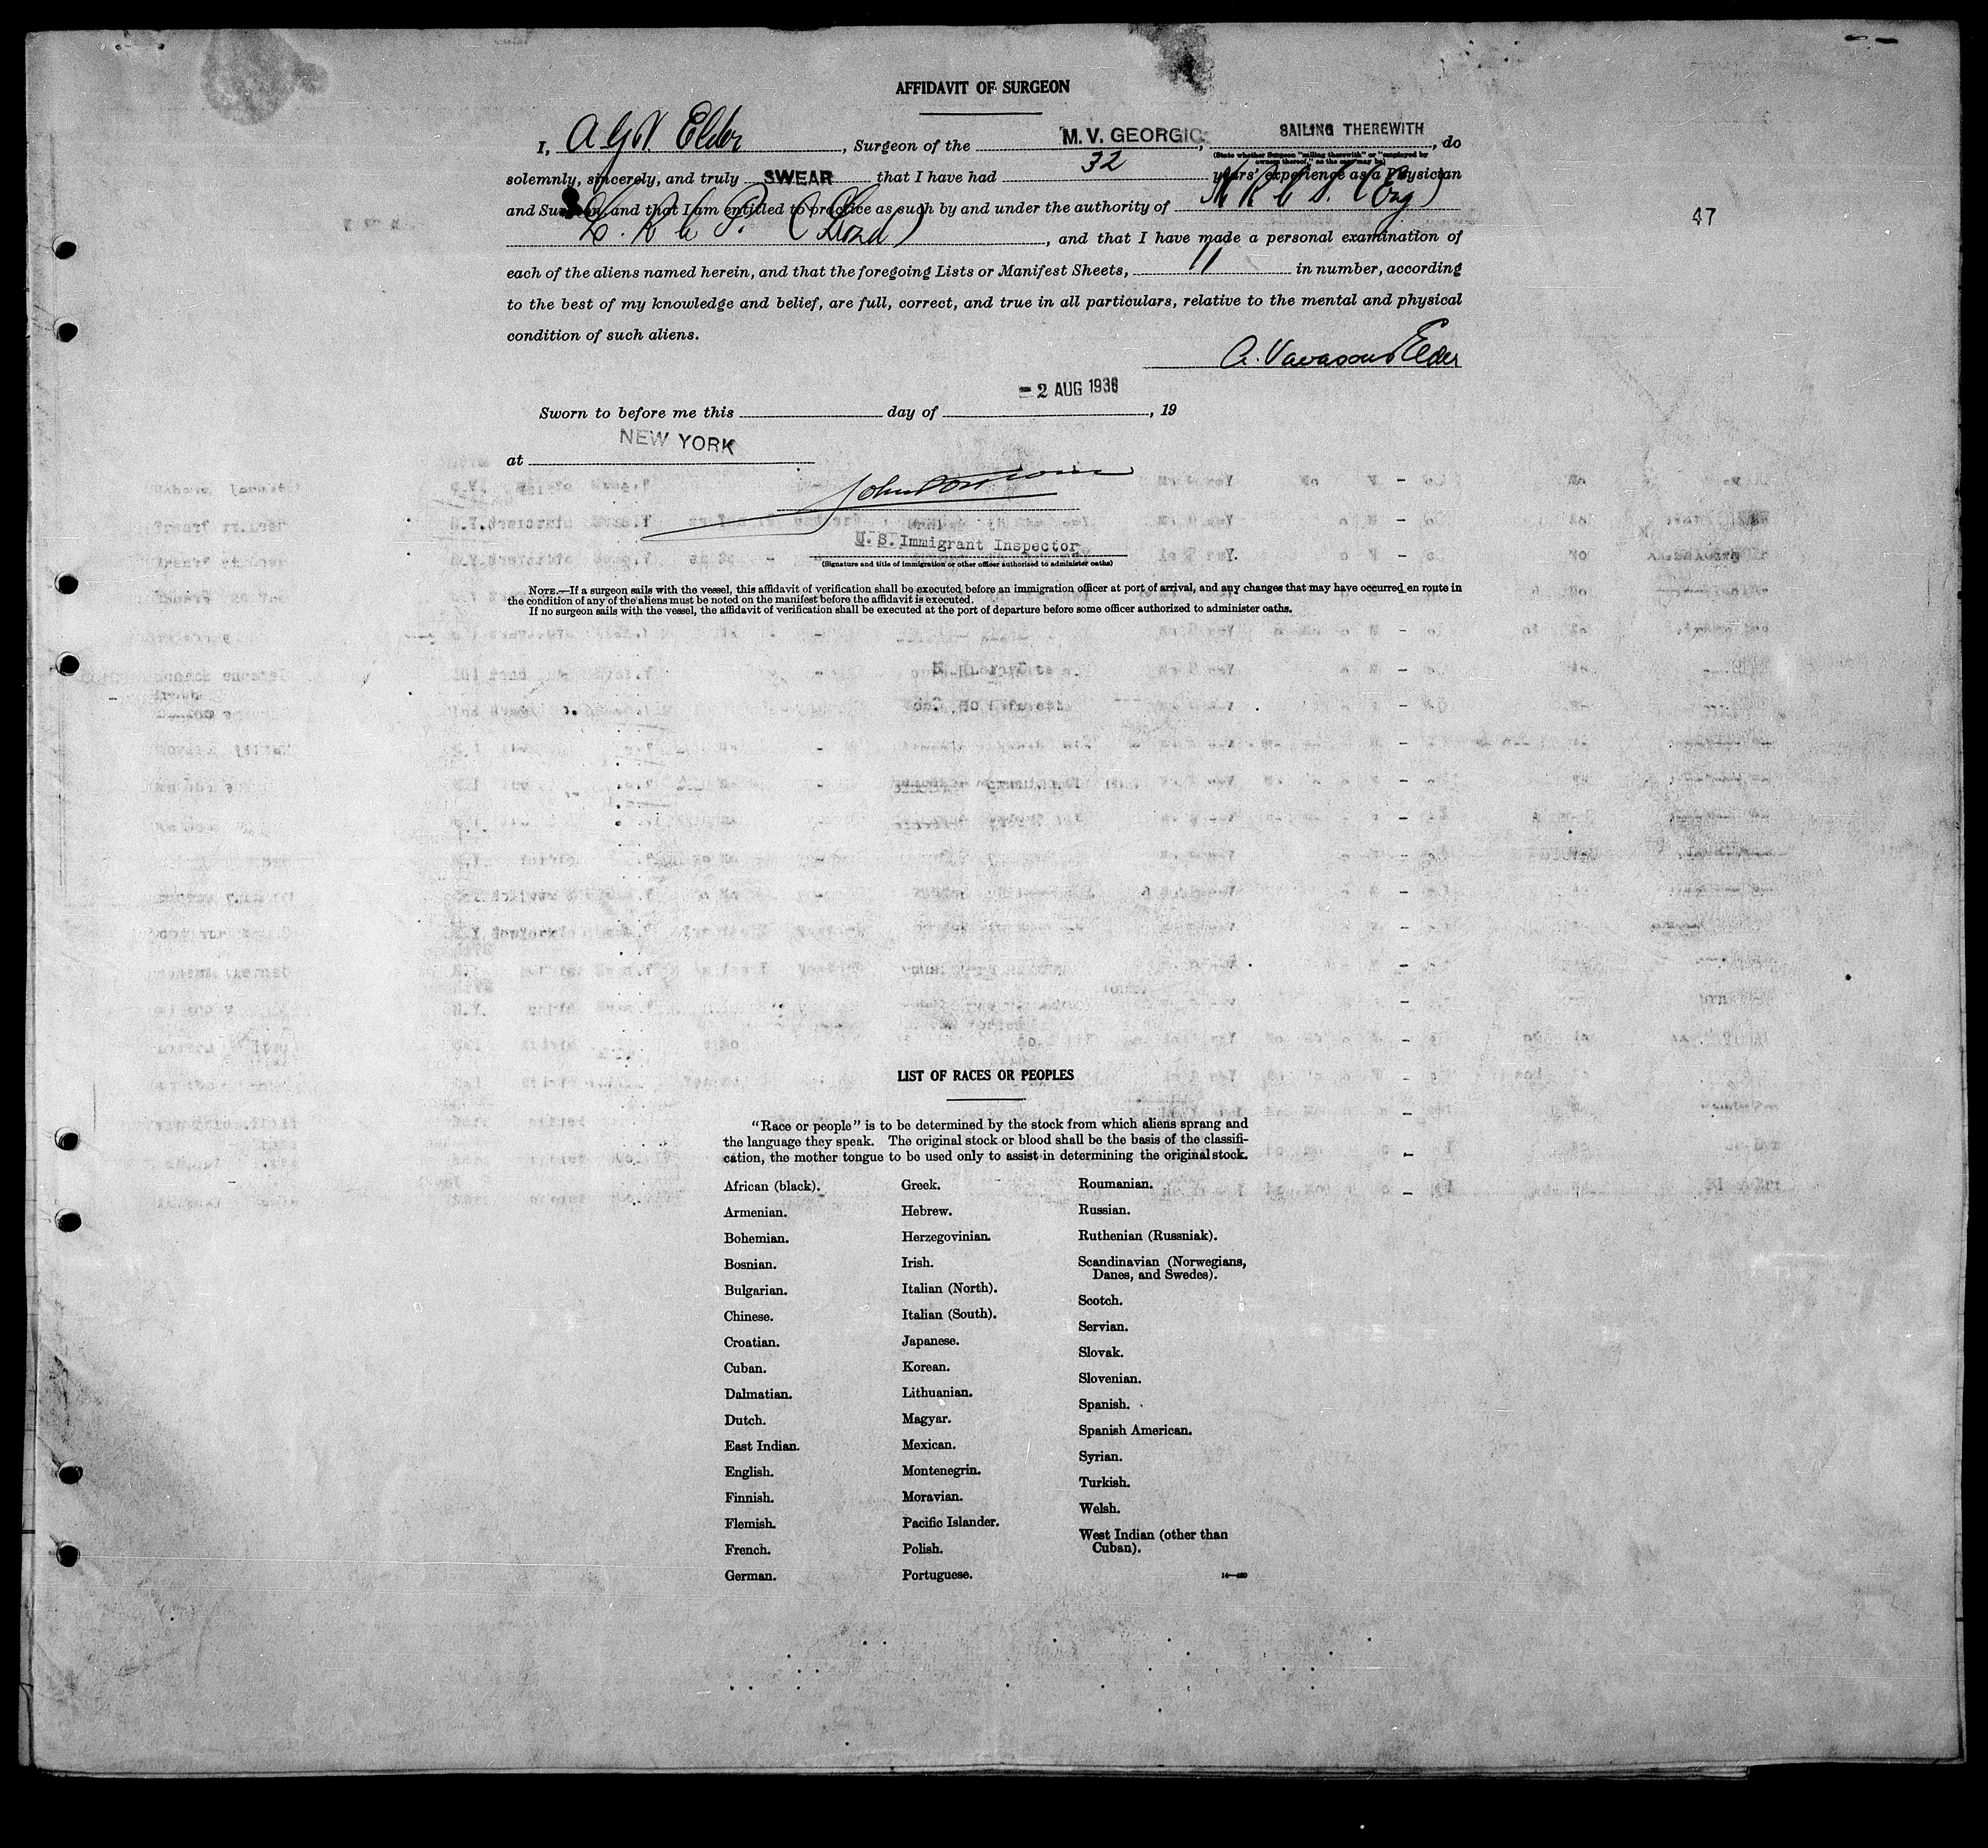 AFFIDAVIT OF SURGEON
I, A G V Elder, Surgeon of the M. V. GEORGIC, SAILING THEREWITH, do
(State whether Surgeon "sailing therewith" or "employed by
owners thereof," as the case may be)
solemnly, sincerely, and truly SWEAR that I have had 32 years' experience as a Physician
and Surgeon, and that I am entitled to practice as such by and under the authority of M R C S. (Eng)
L. R C P. (Lond), and that I have made a personal examination of
each of the aliens named herein, and that the foregoing Lists or Manifest Sheets, 11 in number, according
to the best of my knowledge and belief, are full, correct, and true in all particulars, relative to the mental and physical
condition of such aliens.
A. Vavasour Elder
47
- 2 AUG 1936
Sworn to before me this day of , 19
at NEW YORK
U. S. Immigrant Inspector
(Signature and title of immigration or other officer authorized to administer oaths)
NOTE.—If a surgeon sails with the vessel, this affidavit of verification shall be executed before an immigration officer at port of arrival, and any changes that may have occurred en route in
the condition of any of the aliens must be noted on the manifest before the affidavit is executed.
If no surgeon sails with the vessel, the affidavit of verification shall be executed at the port of departure before some officer authorized to administer oaths.
LIST OF RACES OR PEOPLES
"Race or people" is to be determined by the stock from which aliens sprang and
the language they speak. The original stock or blood shall be the basis of the classifi-
cation, the mother tongue to be used only to assist in determining the original stock.
African (black).
Armenian.
Bohemian.
Bosnian.
Bulgarian.
Chinese.
Croatian.
Cuban.
Dalmatian.
Dutch.
East Indian.
English.
Finnish.
Flemish.
French.
German.
Greek.
Hebrew.
Herzegovinian.
Irish.
Italian (North).
Italian (South).
Japanese.
Korean.
Lithuanian.
Magyar.
Mexican.
Montenegrin.
Moravian.
Pacific Islander.
Polish.
Portuguese.
Roumanian.
Russian.
Ruthenian (Russniak).
Scandinavian (Norwegians,
Danes, and Swedes).
Scotch.
Servian.
Slovak.
Slovenian.
Spanish.
Spanish American.
Syrian.
Turkish.
Welsh.
West Indian (other than
Cuban).